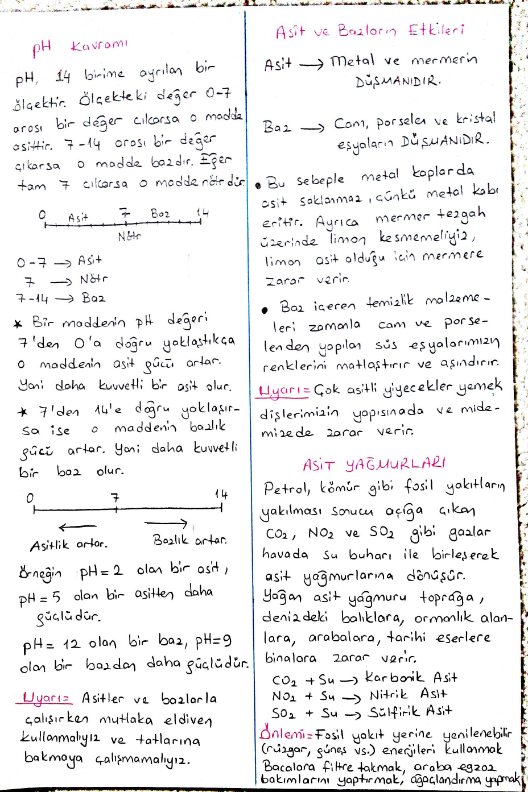 pH Kavramı
pH, 14 birime ayrılan bir
ölçektir. Ölçekteki değer 0-7
arası bir değer çıkarsa o madde
asittir. 7-14 arası bir değer
çıkarsa o madde bazdır. Eğer
tam 7 çıkarsa o madde nötrdür
0 Asit 7 Baz 14
Nötr
0-7 → Asit
7 → Nötr
7-14 → Baz
* Bir maddenin pH değeri
7'den 0'a doğru yaklaştıkça
o maddenin asit gücü artar.
Yani daha kuvvetli bir asit olur.
* 7'den 14'e doğru yaklaşır-
sa ise o maddenin bazlık
gücü artar. Yani daha kuvvetli
bir baz olur.
0 7 14
← →
Asitlik artar. Bazlık artar.
Örneğin pH=2 olan bir asit,
pH=5 olan bir asitten daha
güçlüdür.
pH=12 olan bir baz, pH=9
olan bir bazdan daha güçlüdür.
Uyarı= Asitler ve bazlarla
çalışırken mutlaka eldiven
kullanmalıyız ve tatlarına
bakmaya çalışmamalıyız.
Asit ve Bazların Etkileri
Asit → Metal ve mermerin
DÜŞMANIDIR.
Baz → Cam, porselen ve kristal
eşyaların DÜŞMANIDIR.
• Bu sebeple metal kaplarda
asit saklanmaz, çünkü metal kabı
eritir. Ayrıca mermer tezgah
üzerinde limon kesmemeliyiz,
limon asit olduğu için mermere
zarar verir.
• Baz içeren temizlik malzeme-
leri zamanla cam ve porse-
lenden yapılan süs eşyalarımızın
renklerini matlaştırır ve aşındırır.
Uyarı= Çok asitli yiyecekler yemek
dişlerimizin yapısınada ve mide-
mizede zarar verir.
ASİT YAĞMURLARI
Petrol, kömür gibi fosil yakıtların
yakılması sonucu açığa çıkan
CO₂, NO₂ ve SO₂ gibi gazlar
havada su buharı ile birleşerek
asit yağmurlarına dönüşür.
Yağan asit yağmuru toprağa,
denizdeki balıklara, ormanlık alan-
lara, arabalara, tarihi eserlere
binalara zarar verir.
CO₂ + Su → Karbonik Asit
NO₂ + Su → Nitrik Asit
SO₂ + Su → Sülfirik Asit
Önlemi= Fosil yakıt yerine yenilenebilir
(rüzgar, güneş vs.) enerjileri kullanmak
Bacalara filtre takmak, araba egzoz
bakımlarını yaptırmak, ağaçlandırma yapmak